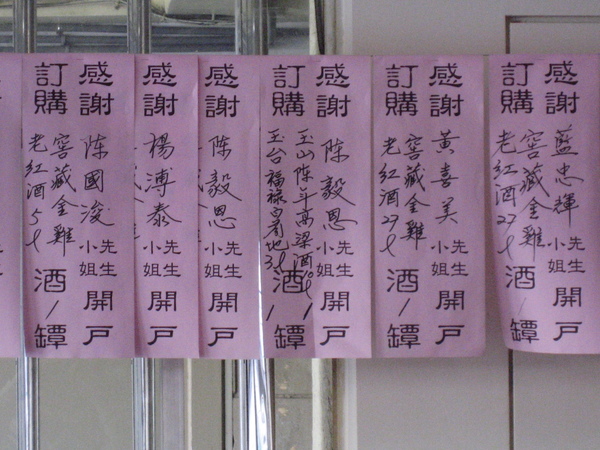 感謝藍忠輝先生小姐開戶
訂購窖藏金雞老紅酒酒1罈
感謝黃喜美先生小姐開戶
訂購窖藏金雞老紅酒酒1罈
感謝陳毅恩先生小姐開戶
訂購玉山陳年高粱酒酒1罈
玉台福祿
感謝陳毅恩先生小姐開戶
感謝楊溥泰先生小姐開戶
感謝陳國浚先生小姐開戶
訂購窖藏金雞老紅酒酒1罈